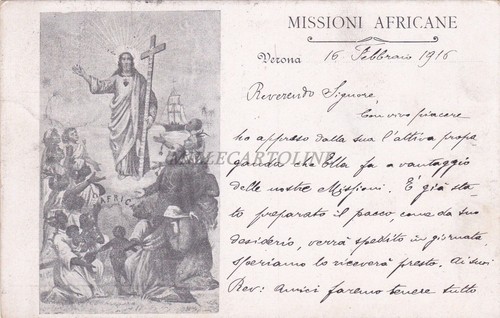 MISSIONI AFRICANE
Verona 16 Febbraio 1916
Reverendo Signore
Con vivo piacere
ho appreso dalla sua l'attiva propa-
ganda che Ella fa a vantaggio
delle nostre Missioni. È già sta-
to preparato il pacco come da suo
desiderio, verrà spedito in giornata
speriamo lo riceverà presto. Ai suoi
Rev: Amici faremo tenere tutto
AFRICA
MILLECARTOLINE